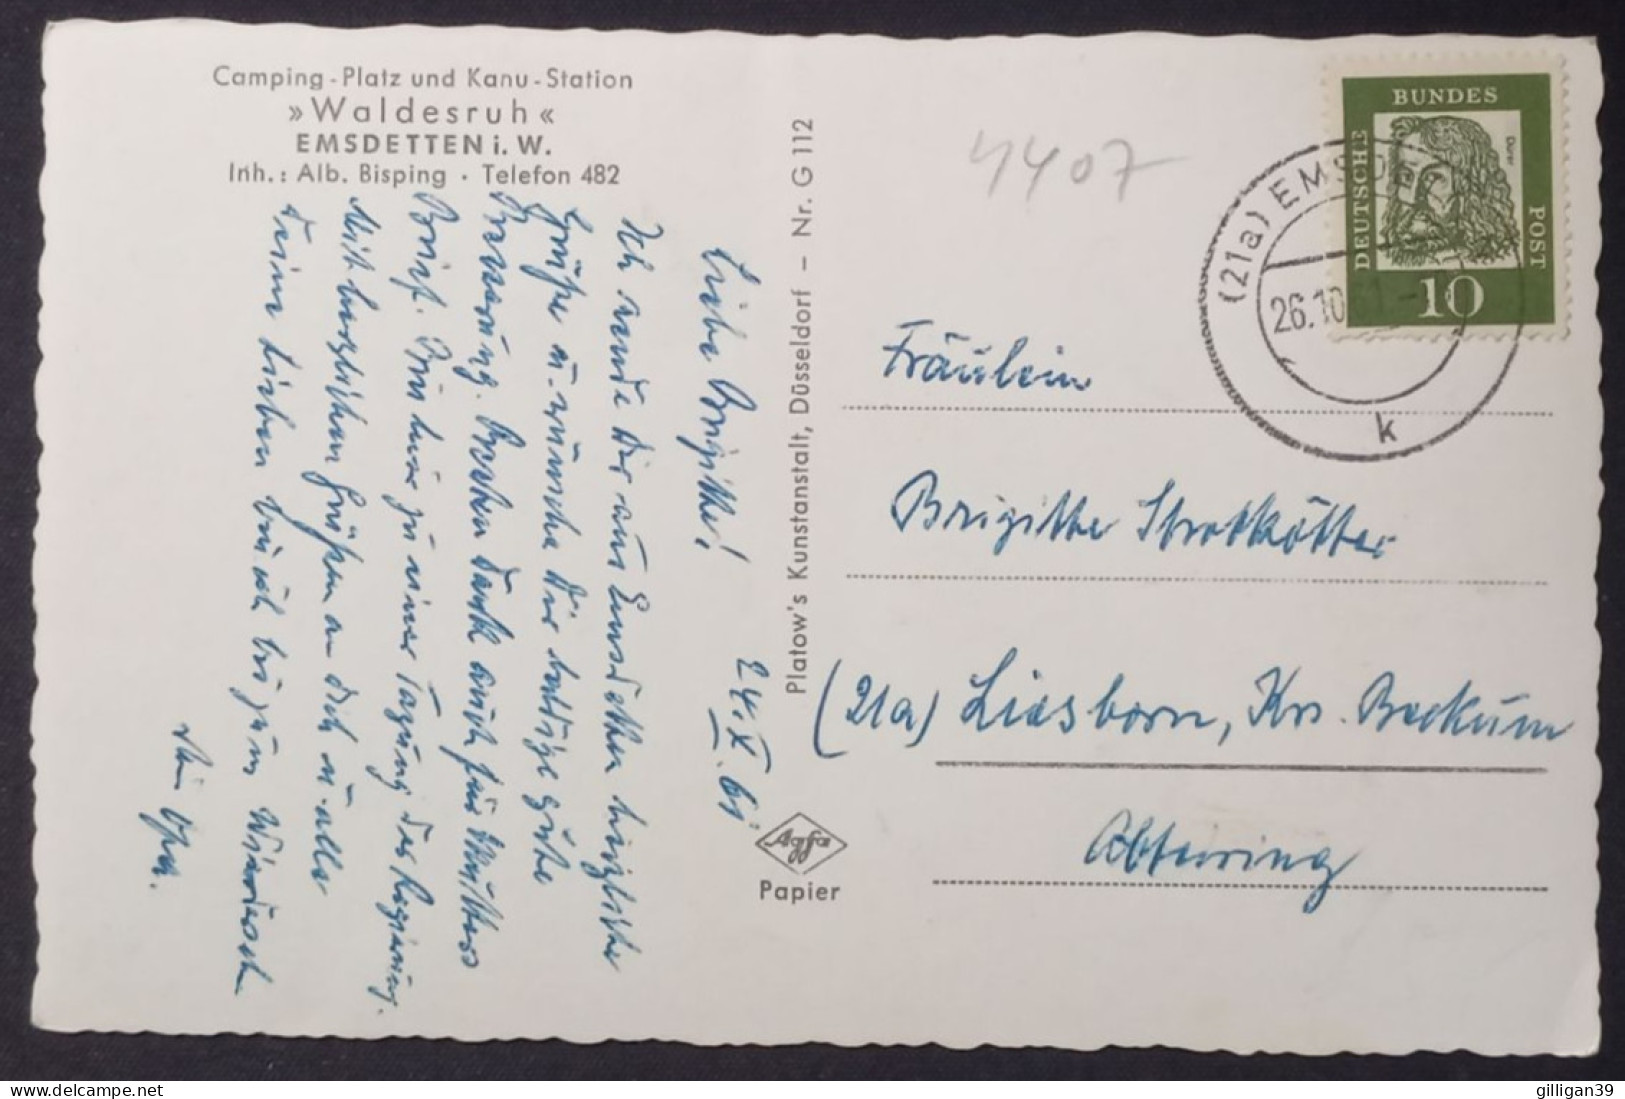 Camping-Platz und Kanu-Station
»Waldesruh«
EMSDETTEN i. W.
Inh.: Alb. Bisping · Telefon 482
24.X.61.
Liebe Brigitte!
Ich sende Dir aus Emsdetten herzliche
Grüße u. wünsche Dir baldige gute
Besserung. Besten Dank auch für Mutters
Brief. Bin hier zu einer Tagung der Regierung.
Mit herzlichen Grüßen an Dich u. alle
Deine Lieben bin ich bis zum Wiedersehn
Dein Opa.
Platow's Kunstanstalt, Düsseldorf – Nr. G 112
Agfa
Papier
4407
DEUTSCHE
BUNDES
POST
Dürer
10
(21a) EMSDE
26.10
k
Fräulein
Brigitte Strotkötter
(21a) Liesborn, Krs. Beckum
Abteiring
gilligan39
delcampe.net